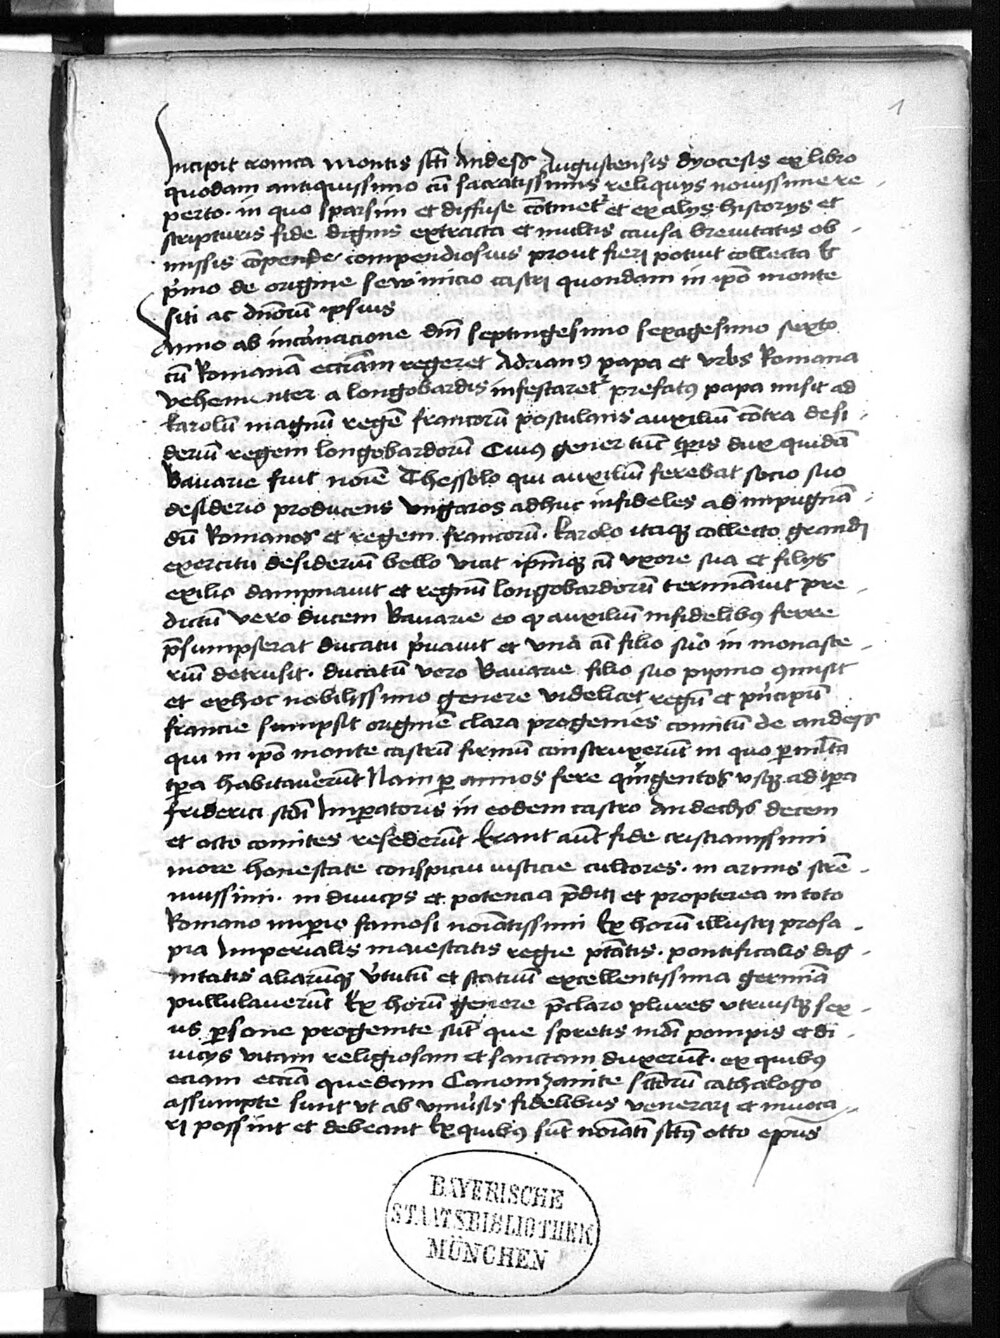 1
Incipit cronica montis sctī Andess Augustensis dyocesis ex libro
quodam antiquissimo cū sacratissimis reliquys nouissime re-
perto· in quo sparsim et diffuse cōtinet² et ex alys historys et
scripturis fide dignis extracta et multis causa breuitatis ob-
missis cōpende compendiosius prout fieri potuit collecta Et
p̄mo de origine seu inicio castri quondam in ip̄o monte
siti ac dn̄orū ipsius
Anno ab incarnacione dnī septingesimo sexagesimo sexto
cū Romanā eccl̄iam regeret Adrian⁹ papa et vrbs Romana
vehementer a longobardis infestaret² prefat⁹ papa misit ad
karolū magnū regē francorū postulans auxiliū cōtra desi-
deriū regem longobardorū Cuius gener tūc tp̄is dux quidā
Bauarie fuit noīe Thessolo qui auxiliū ferebat socio suo
desiderio producens vngaros adhuc infideles ad impugnā-
dū Romanos et regem francorū· karolo itaq₃ collecto grandi
exercitu desideriū bello vicit ip̄mq₃ cū vxore sua et filys
exilio dampnauit et regnū longobardorū termīauit pre-
dictū vero ducem Bauarie eo q auxiliū infidelib⁹ ferre
p̄sumpserat ducatu p̄uauit et vna cū filio suo in monaste-
riū detrusit· ducatū vero Bauarie filio suo pipino 9misit
et ex hoc nobilissimo genere videlicet regū et p̄ncipū
francie sumpsit originē clara progenies comitū de andess
qui in ip̄o monte castrū firmū construxerūt in quo p̄ ml̄ta
tp̄a habitauerūt Nam p̄ annos fere q̄ngentos vsq₃ ad tp̄a
friderici scd̄i Imp̄atoris in eodem castro Andechs decem
et octo comites resederūt Erant aūt fide cristianissimi
more honestate conspicui iusticie cultores· in armis strē-
nuissimi· in diuicys et potencia p̄diti et propterea in toto
Romano imp̄io famosi noīatissimi Ex horū illustri prosa-
pia Imperialis maiestatis regie ptātis· pontificalis dig-
nitatis aliarūq₃ v̄tutū et statuū excellentissima germīa
pullulauerūt Ex horū genere p̄claro plures vtriusq₃ sex-
us p̄sone progenite sūt que spretis mdī pompis et di-
uicys vitam religiosam et sanctam duxerūt· ex quib⁹
eciam eccl̄ia quedam Canonizante sctōrū cathalogo
assumpte sunt vt ab vniūsis fidelibus venerari et inuoca-
ri possint et debeant Ex quib⁹ sūt noīati sct⁹ otto ep̄us
BAYERISCHE
STAATSBIBLIOTHEK
MÜNCHEN